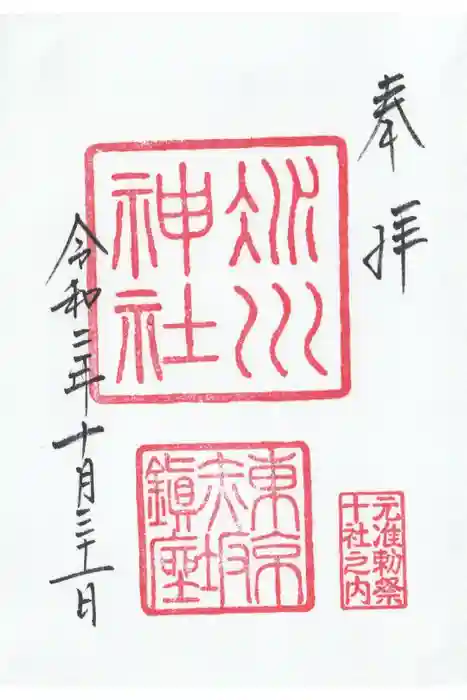 奉拝
氷川
神社
令和三年十月三十一日
東京
赤坂
鎮座
元准勅祭
十社之内